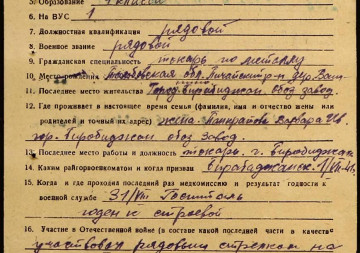 5. Образование 4 класса
6. На ВУС 1
7. Должностная квалификация рядовой
8. Военное звание рядовой
9. Гражданская специальность токарь по металлу
10. Место рождения обл. р-н дер.
11. Последнее место жительства Город Биробиджан обоз завод.
12. Где проживает в настоящее время семья (фамилия, имя и отчество жены или
родителей и точный их адрес) жена Варвара Ив.
гор. Биробиджан обоз. Завод.
13. Последнее место работы и должность токарь. г. Биробиджан
14. Каким райгорвоенкоматом и когда призван
15. Когда и где проходил последний раз медкомиссию и результат годности к
военной службе 31/VIII Госпиталь
годен к строевой
16. Участие в Отечественной войне (в составе какой последней части и в качестве
участвовал рядовым стрелком на